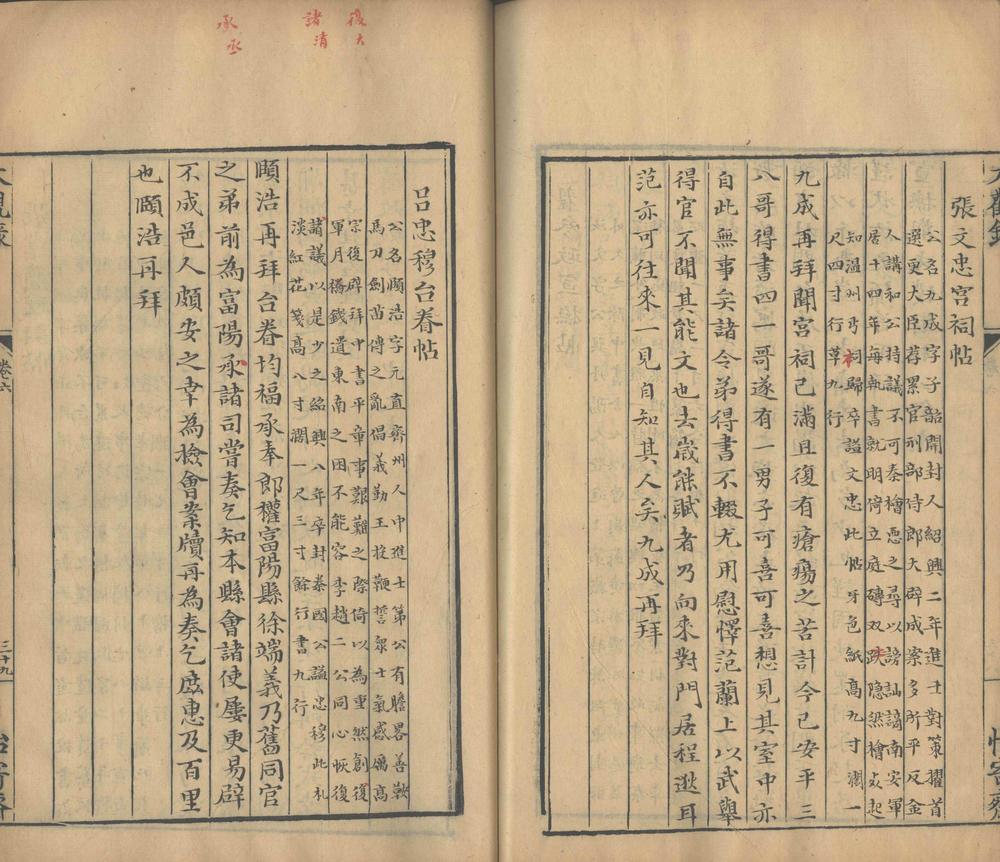 張文忠宮祠帖
公名九成字子韶開封人紹興二年進士對策擢首
選更大臣荐累官刑部侍郎大辟成案多所平反金
人講和公持議不可秦檜惡之尋以謗訕謫南安軍
居十四年每執書就明倚立庭磚双趺隐然檜
知溫州丐祠歸卒諡文忠此帖牙色紙高九寸濶一
尺四寸行草九行
九成再拜聞宮祠已滿且復有瘡瘍之苦計今已安平三
八哥得書四一哥遂有一男子可喜可喜想見其室中亦
自此無事矣諸令弟得書不輟尤用慰懌范蘭上以武舉
得官不聞其能文也去歲能賦者乃向來對門居程逖耳
范亦可往來一見自知其人矣九成再拜
吕忠穆台眷帖
公名頤浩字元直齊州人中進士第公有膽畧善鞍
馬刀劍苗傅之亂倡義勤王投鞭誓衆士氣感厲高
宗復辟拜中書平章事艱難之際倚以為重然創復
軍月樁錢遺東南之困不能容李趙二公同心恢復
諸議以是少之紹興八年卒封秦國公諡忠穆此札
淡紅花箋高八寸濶一尺三寸餘行書九行
頤浩再拜台眷均福承奉郎權富陽縣徐端義乃舊同官
之弟前為富陽承諸司嘗奏乞知本縣會諸使屢更易辟
不成邑人頗安之幸為檢會案牘再為奏乞庶惠及百里
也頤浩再拜
卷六
三十九
復大
諸清
承丞